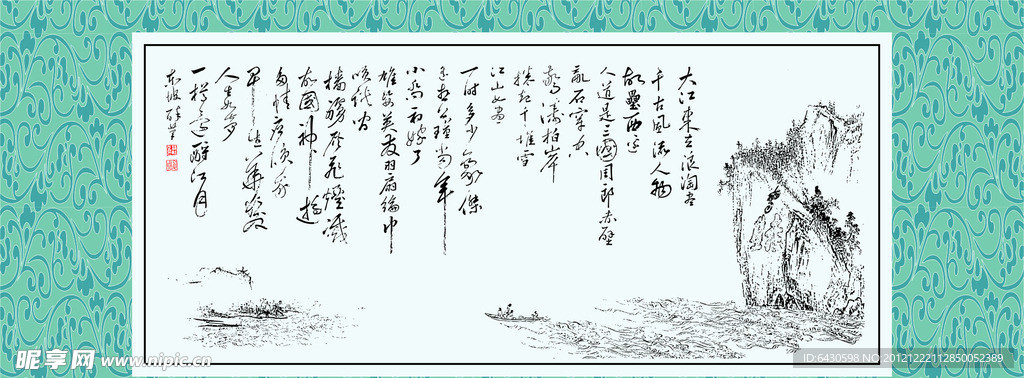 大江東去浪淘盡
千古風流人物
故壘西邊
人道是三國周郎赤壁
亂石穿空
驚濤拍岸
捲起千堆雪
江山如畫
一時多少豪傑
遙想公瑾當年
小喬初嫁了
雄姿英發羽扇綸巾
談笑間
檣櫓灰飛煙滅
故國神遊
多情應笑我
早生華髮
人生如夢
一樽還酹江月
東坡
昵享网 www.nipic.cn
ID:6430598 NO:20121222112850052389